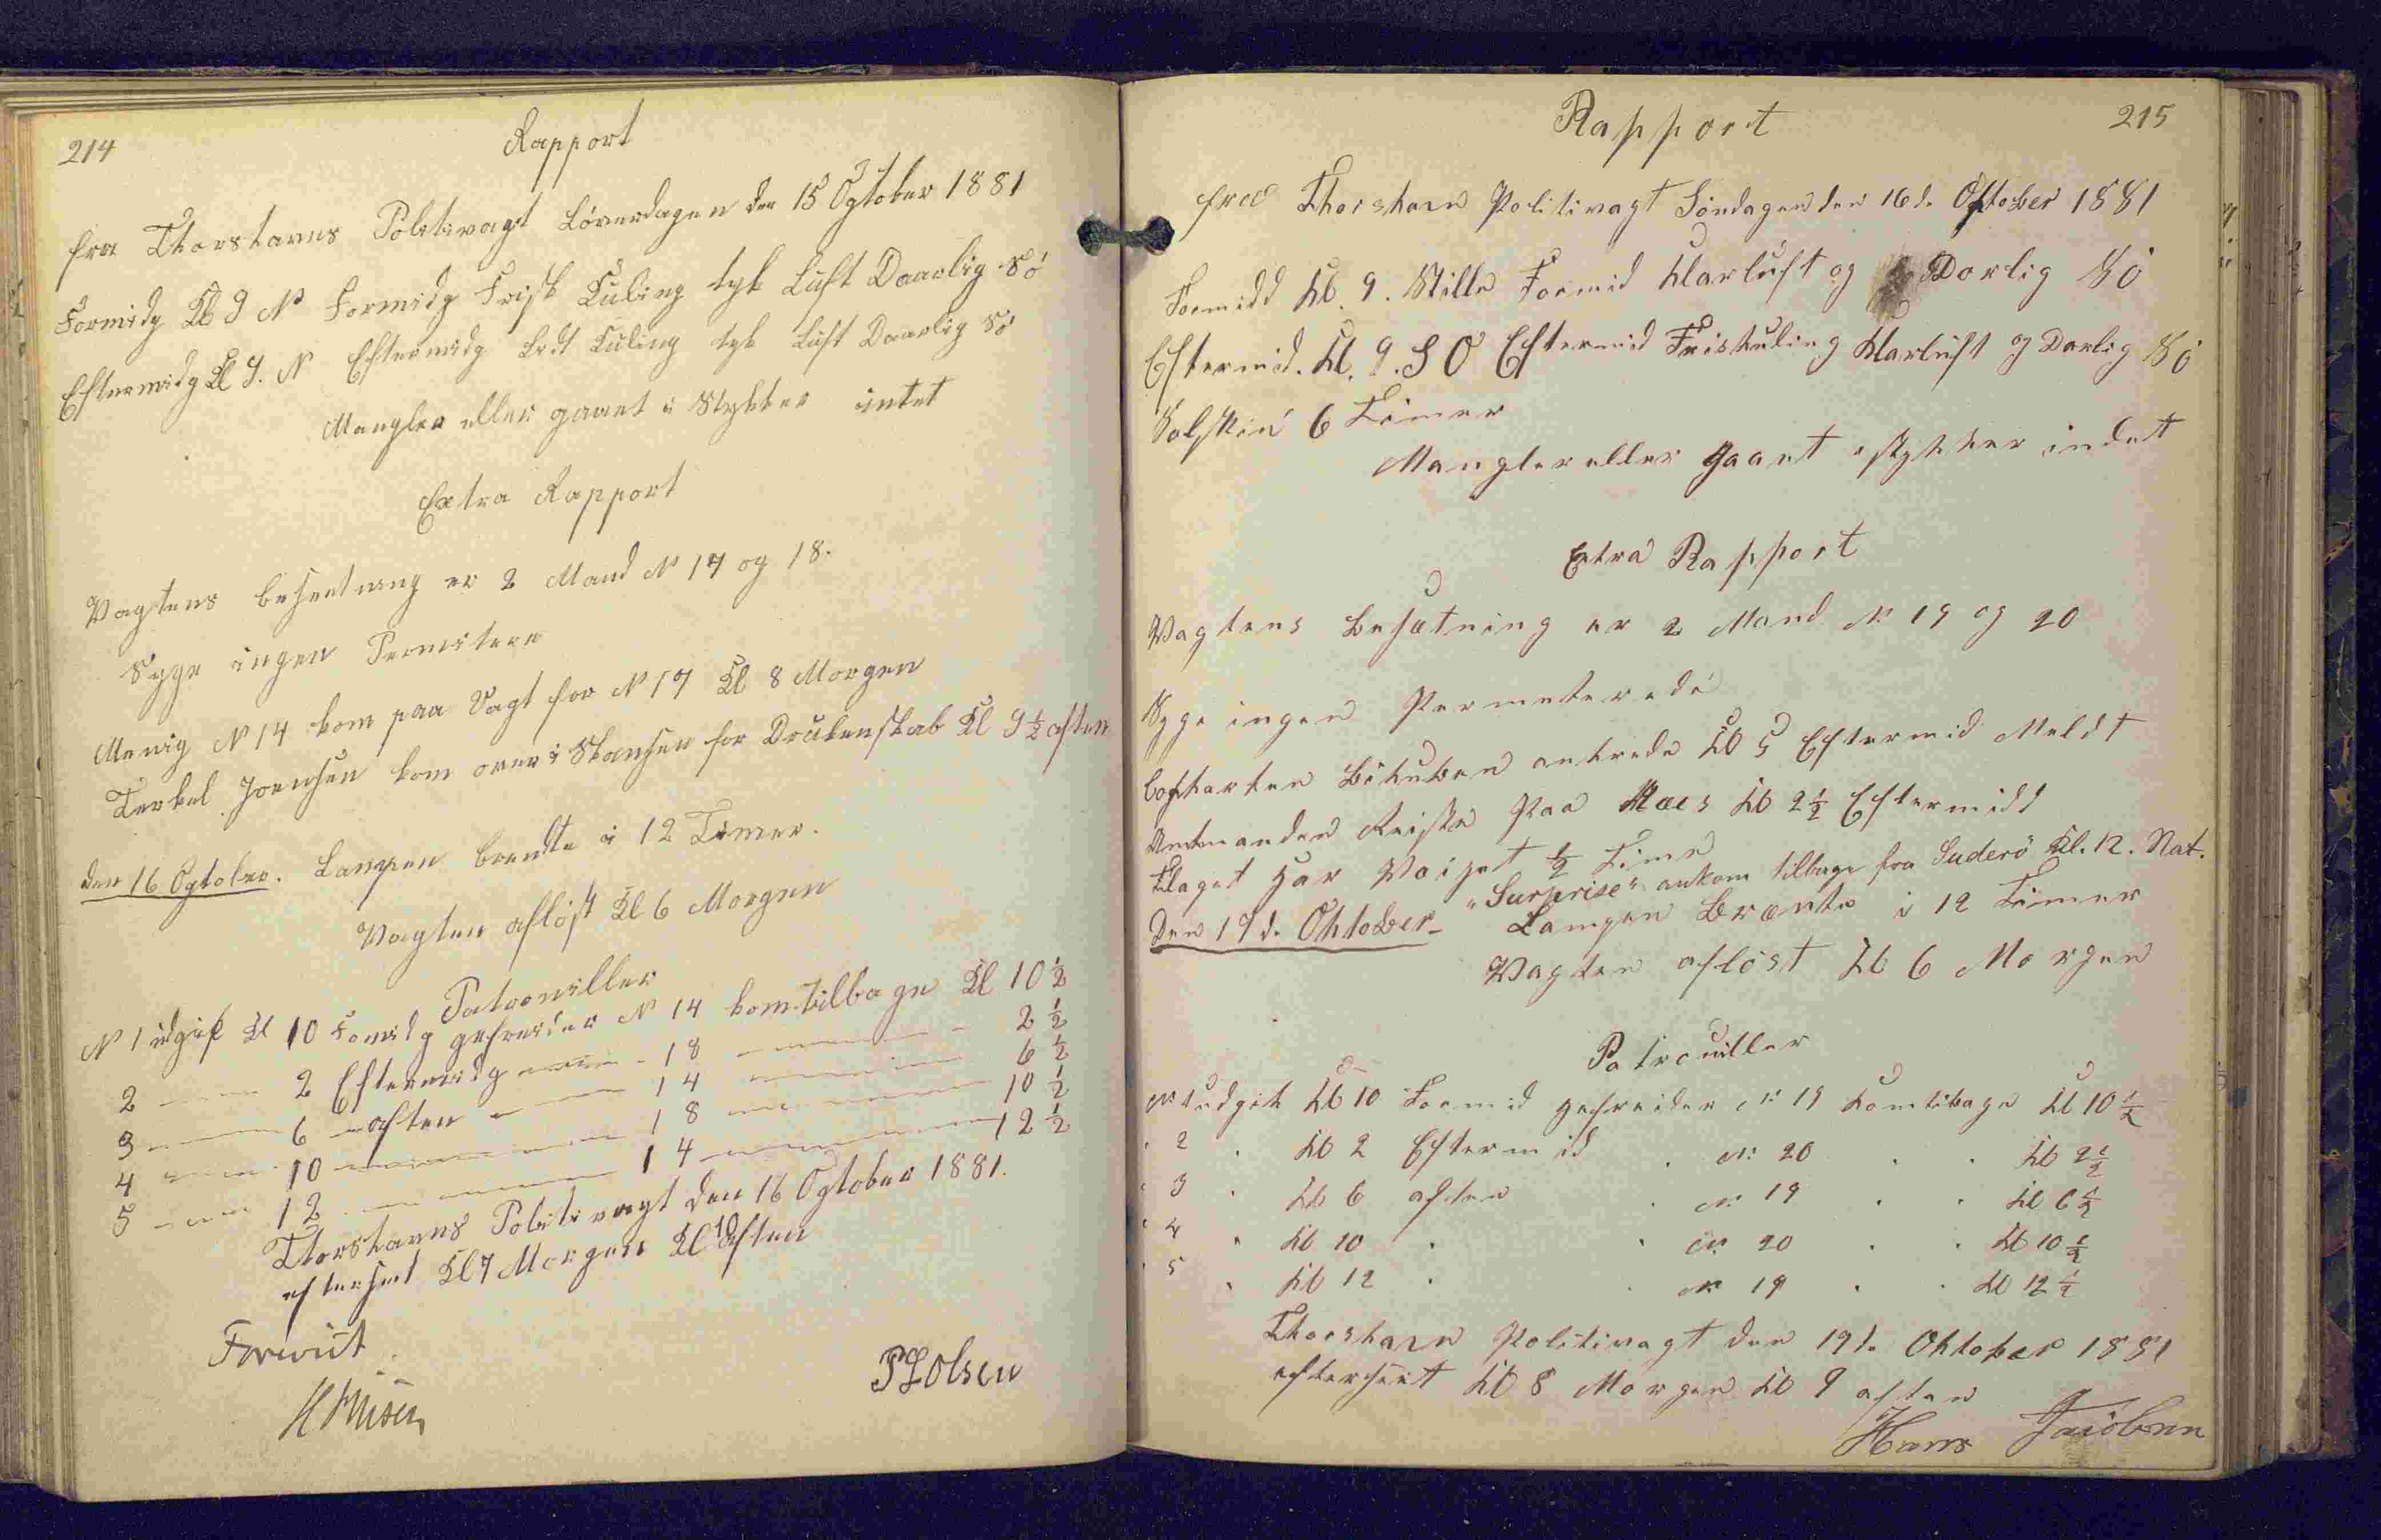 214
Rapport
fra Thorshavns Politivagt Löverdagen den 15 Ogtober 1881
Formidg Kl 9 N Formidg Frisk Kuling tyk Luft Daarlig Sö
Eftermidg Kl 9. N Eftermidg Kuling tyk Luft Daarlig Sö
Mangler eller gaaet i Stykker intet
Extra Rapport
Vagtens besætning er 2 Mand N 17 og 18.
Syge ingen Permitere
Menig N 14 kom paa Vagt for N 17 Kl 8 Morgen
Terkel Joensen kom over i Skansen for Drukenskab Kl 9½ aften
den 16 Ogtober. Lampen brendte i 12 Timer.
Vagten aflöst Kl 6 Morgen
Patroniller
N 1 udgik Kl 10 Fomidg gefreider N 14 kom tilbage Kl 10½
2 — 2 Eftermidg — 18 — 2½
3 — 6 — aften — 14 — 6½
4 — 10 — 18 — 10½
5 — 12 — 14 — 12½
Thorshavns Politivagt den 16 Ogtober 1881.
efterseet Kl 7 Morgen Kl 10 Aften
Forevist
PLOlsen
215
Rapport
fra Thorshavn Politivagt Söndagen den 16 d. Oktober 1881
Formidd Kl. 9. Stille Formid Klarluft og Dorlig Sö
Eftermid. Kl. 9. S O Eftermid Friskuling Klarluft og Darlig Sö
Solskin 6 Timer
Mangler eller gaaet i stykker indet
Extra Rapport
Vagtens besætning er 2 Mand N: 19 og 20
Syge ingen Permeterede
ankrede Kl 5 Eftermid Meldt
Amtmanden Reiste Paa Næs Kl 2½ Eftermidd
Flaget har Vaiet ½ Time
"Surprise" ankom tilbage fra Suderö Kl. 12. Nat.
Den 17 d. Oktober— Lampen brænte i 12 Timer
Vagten aflöst Kl 6 Morgen
Patrouiller
N: 1 udgik Kl 10 Formid gefreider N: 19 komtibage Kl 10½
" 2 " Kl 2 Eftermid " N: 20 " " Kl 2½
" 3 " Kl 6 aften " N: 19 " " Kl 6½
" 4 " Kl 10 " " N: 20 " " Kl 10½
" 5 " Kl 12 " " N: 19 " " Kl 12½
Thorshavn Politivagt den 17 d. Oktober 1881
efterseet Kl 8 Morgen Kl 9 aften
Hans Jacobsen